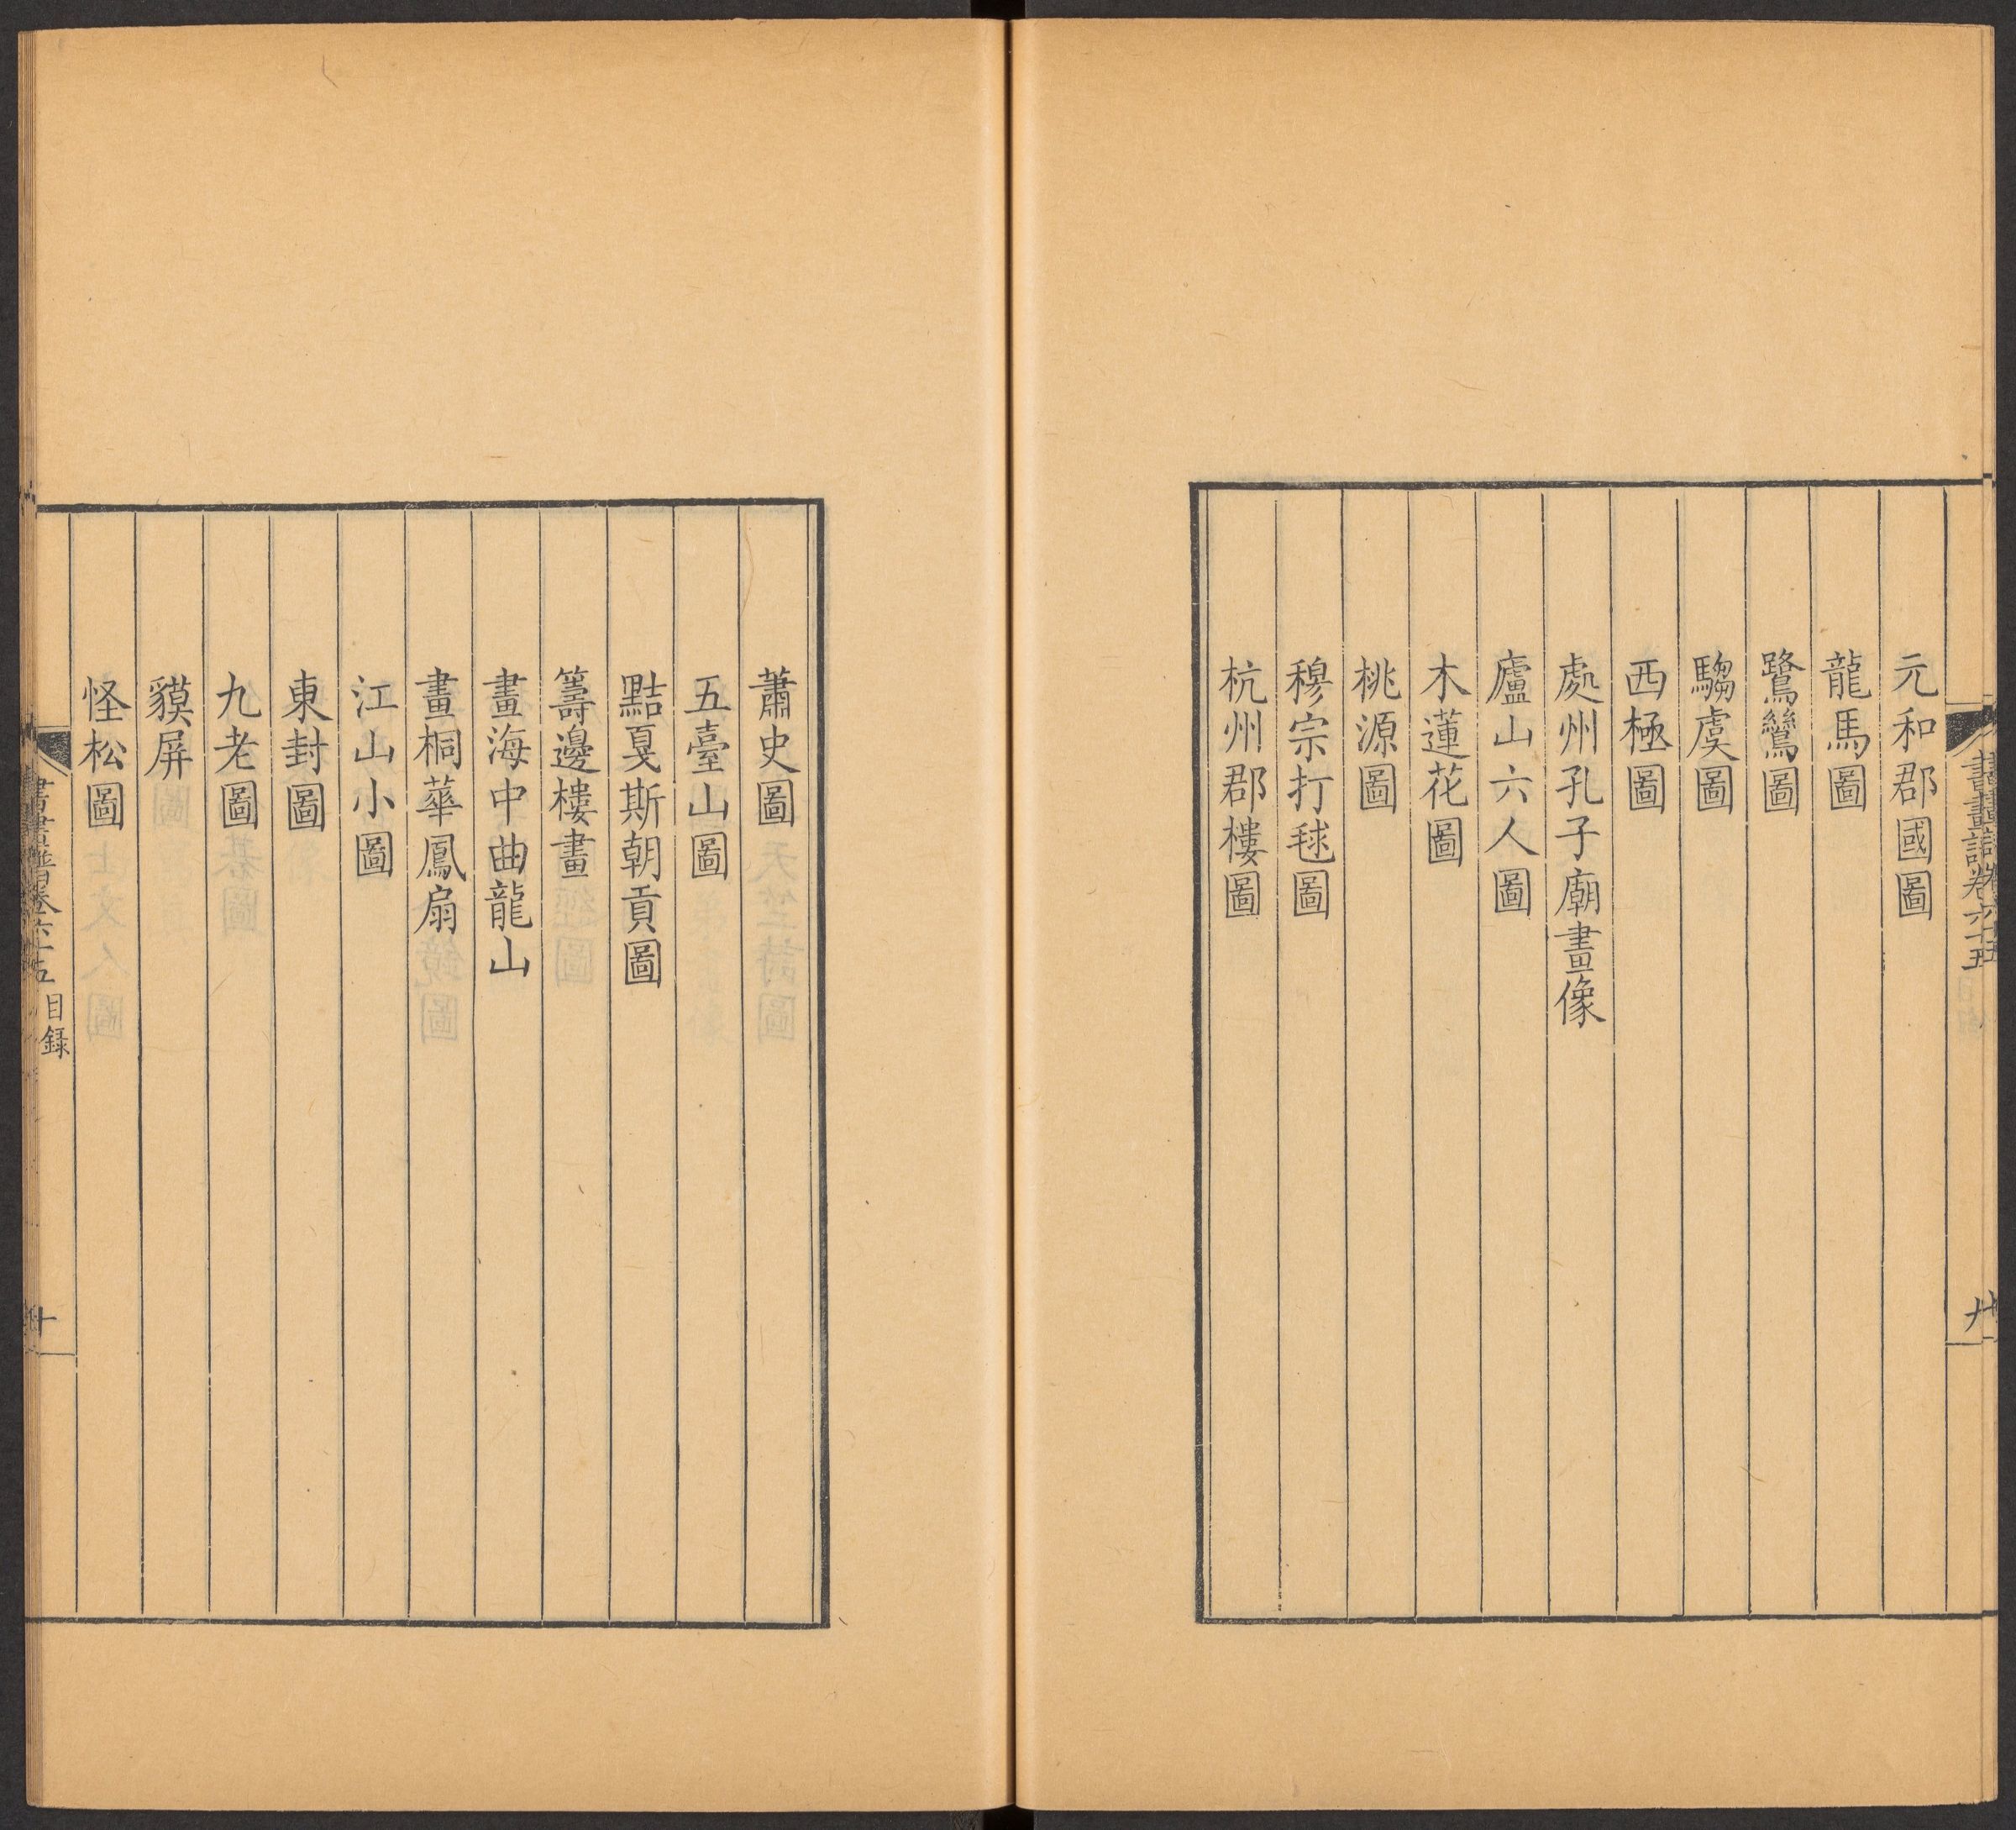 元和郡國圖
龍馬圖
鷺鷥圖
騶虞圖
西極圖
處州孔子廟畫像
廬山六人圖
木蓮花圖
桃源圖
穆宗打毬圖
杭州郡樓圖
蕭史圖
五臺山圖
黠戛斯朝貢圖
籌邊樓畫
畫海中曲龍山
畫桐華鳳扇
江山小圖
東封圖
九老圖
貘屏
怪松圖
書畫譜卷六十五
目録
十